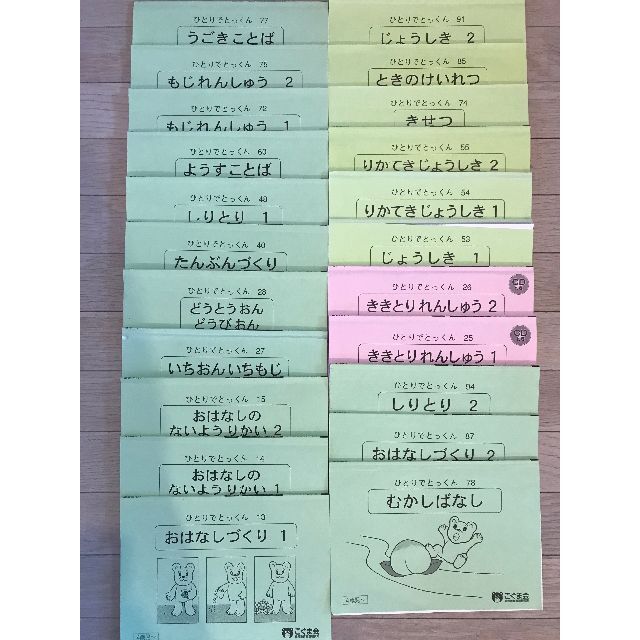 ひとりでとっくん 77
うごきことば
ひとりでとっくん 75
もじれんしゅう 2
ひとりでとっくん 72
もじれんしゅう 1
ひとりでとっくん 60
ようすことば
ひとりでとっくん 48
しりとり 1
ひとりでとっくん 40
たんぶんづくり
ひとりでとっくん 28
どうとうおん
どうびおん
ひとりでとっくん 27
いちおんいちもじ
ひとりでとっくん 15
おはなしの
ないようりかい 2
ひとりでとっくん 14
おはなしの
ないようりかい 1
ひとりでとっくん 13
おはなしづくり 1
こぐま会
ひとりでとっくん 91
じょうしき 2
ひとりでとっくん 85
ときのけいれつ
ひとりでとっくん 74
きせつ
ひとりでとっくん 55
りかてきじょうしき 2
ひとりでとっくん 54
りかてきじょうしき 1
ひとりでとっくん 53
じょうしき 1
ひとりでとっくん 26
CD
ききとりれんしゅう 2
ひとりでとっくん 25
CD
ききとりれんしゅう 1
ひとりでとっくん 94
しりとり 2
ひとりでとっくん 87
おはなしづくり 2
ひとりでとっくん 78
むかしばなし
こぐま会